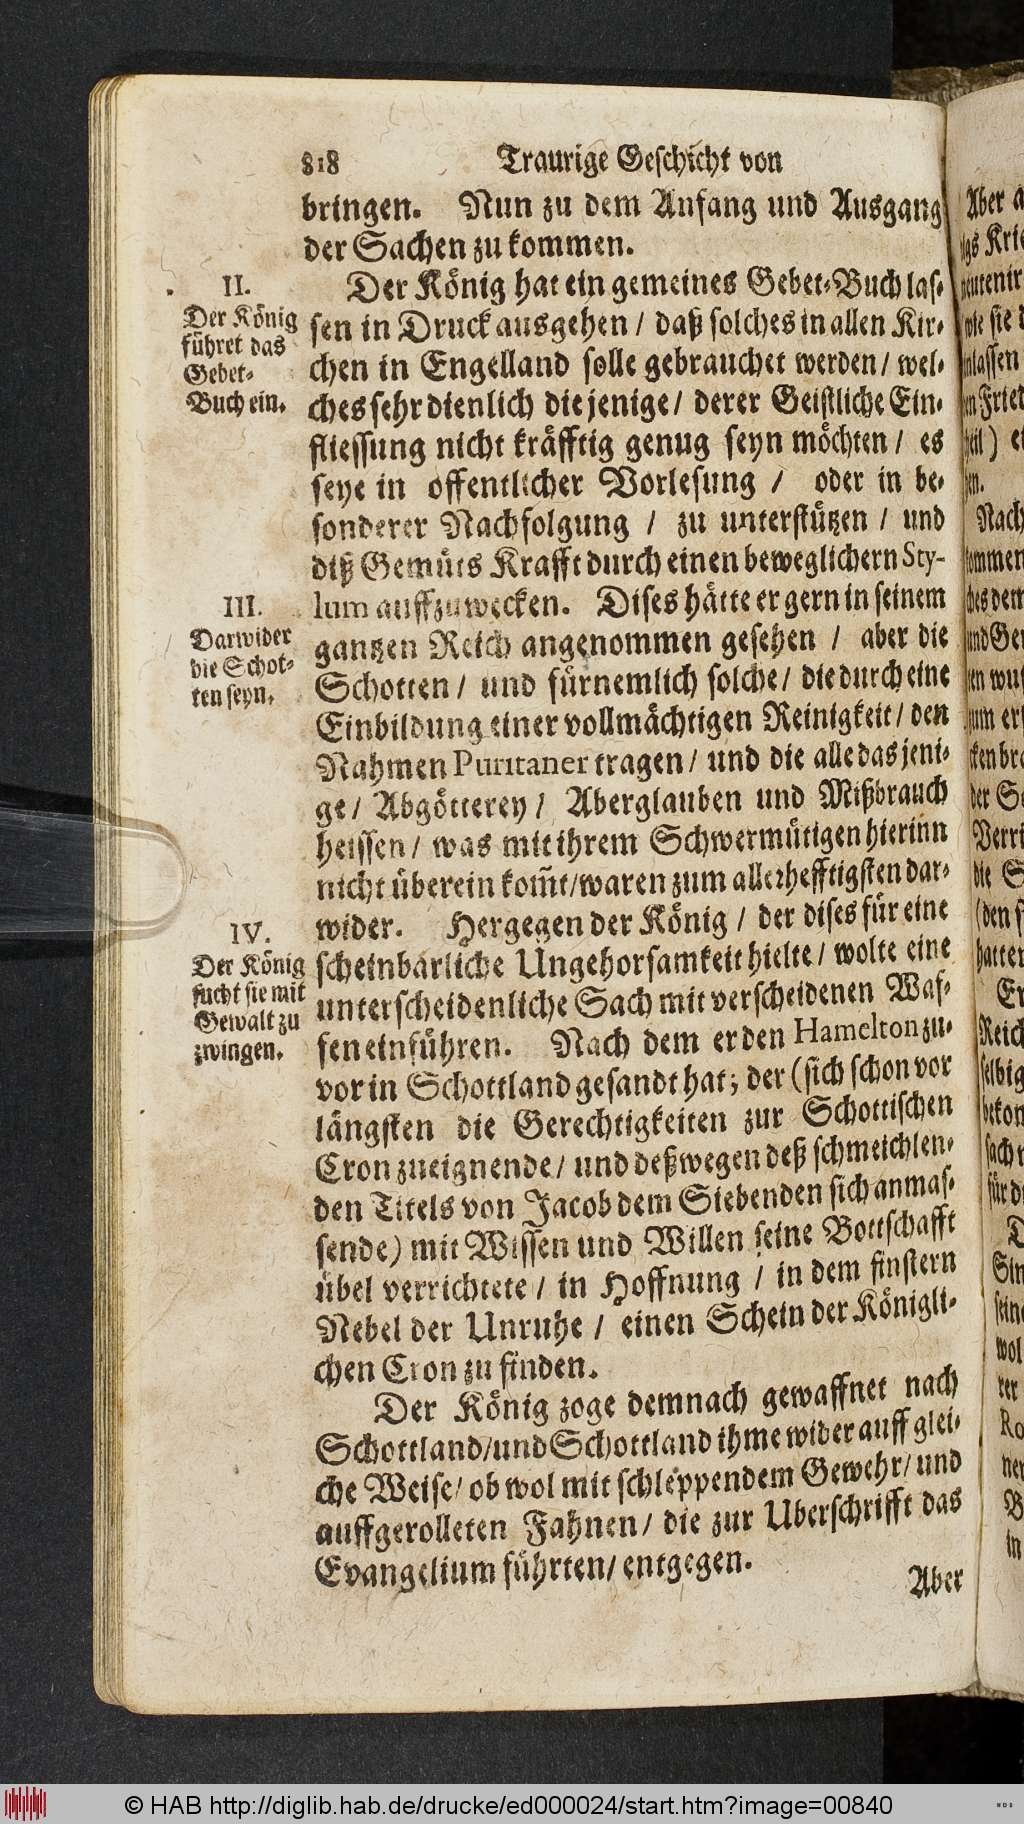 818 Traurige Geschicht von
bringen. Nun zu dem Anfang und Ausgang
der Sachen zu kommen.
II.
Der König
führet das
Gebet-
Buch ein.
Der König hat ein gemeines Gebet-Buch las-
sen in Druck ausgehen / daß solches in allen Kir-
chen in Engelland solle gebrauchet werden / wel-
ches sehr dienlich diejenige / derer Geistliche Ein-
fliessung nicht kräfftig genug seyn möchten / es
seye in offentlicher Vorlesung / oder in be-
sonderer Nachfolgung / zu unterstützen / und
diß Gemüts Krafft durch einen beweglichern Sty-
III.
Darwider
die Schot-
ten seyn.
lum auffzuwecken. Dises hätte er gern in seinem
gantzen Reich angenommen gesehen / aber die
Schotten / und fürnemlich solche / die durch eine
Einbildung einer vollmächtigen Reinigkeit / den
Nahmen Puritaner tragen / und die alle das jeni-
ge / Abgötterey / Aberglauben und Mißbrauch
heissen / was mit ihrem Schwermütigen hierinn
nicht überein kom̃t / waren zum allerhefftigsten dar-
IV.
Der König
sucht sie mit
Gewalt zu
zwingen.
wider. Hergegen der König / der dises für eine
scheinbarliche Ungehorsamkeit hielte / wolte eine
unterscheidenliche Sach mit verscheidenen Waf-
fen einführen. Nach dem er den Hamelton zu-
vor in Schottland gesandt hat; der (sich schon vor
längsten die Gerechtigkeiten zur Schottischen
Cron zueignende / und deßwegen deß schmeichlen-
den Titels von Jacob dem Siebenden sich anmas-
sende) mit Wissen und Willen seine Bottschafft
übel verrichtete / in Hoffnung / in dem finstern
Nebel der Unruhe / einen Schein der Königli-
chen Cron zu finden.
Der König zoge demnach gewaffnet nach
Schottland / und Schottland ihme wider auff glei-
che Weise / ob wol mit schleppendem Gewehr / und
auffgerolleten Fahnen / die zur Uberschrifft das
Evangelium führten / entgegen.
Aber
© HAB http://diglib.hab.de/drucke/ed000024/start.htm?image=00840